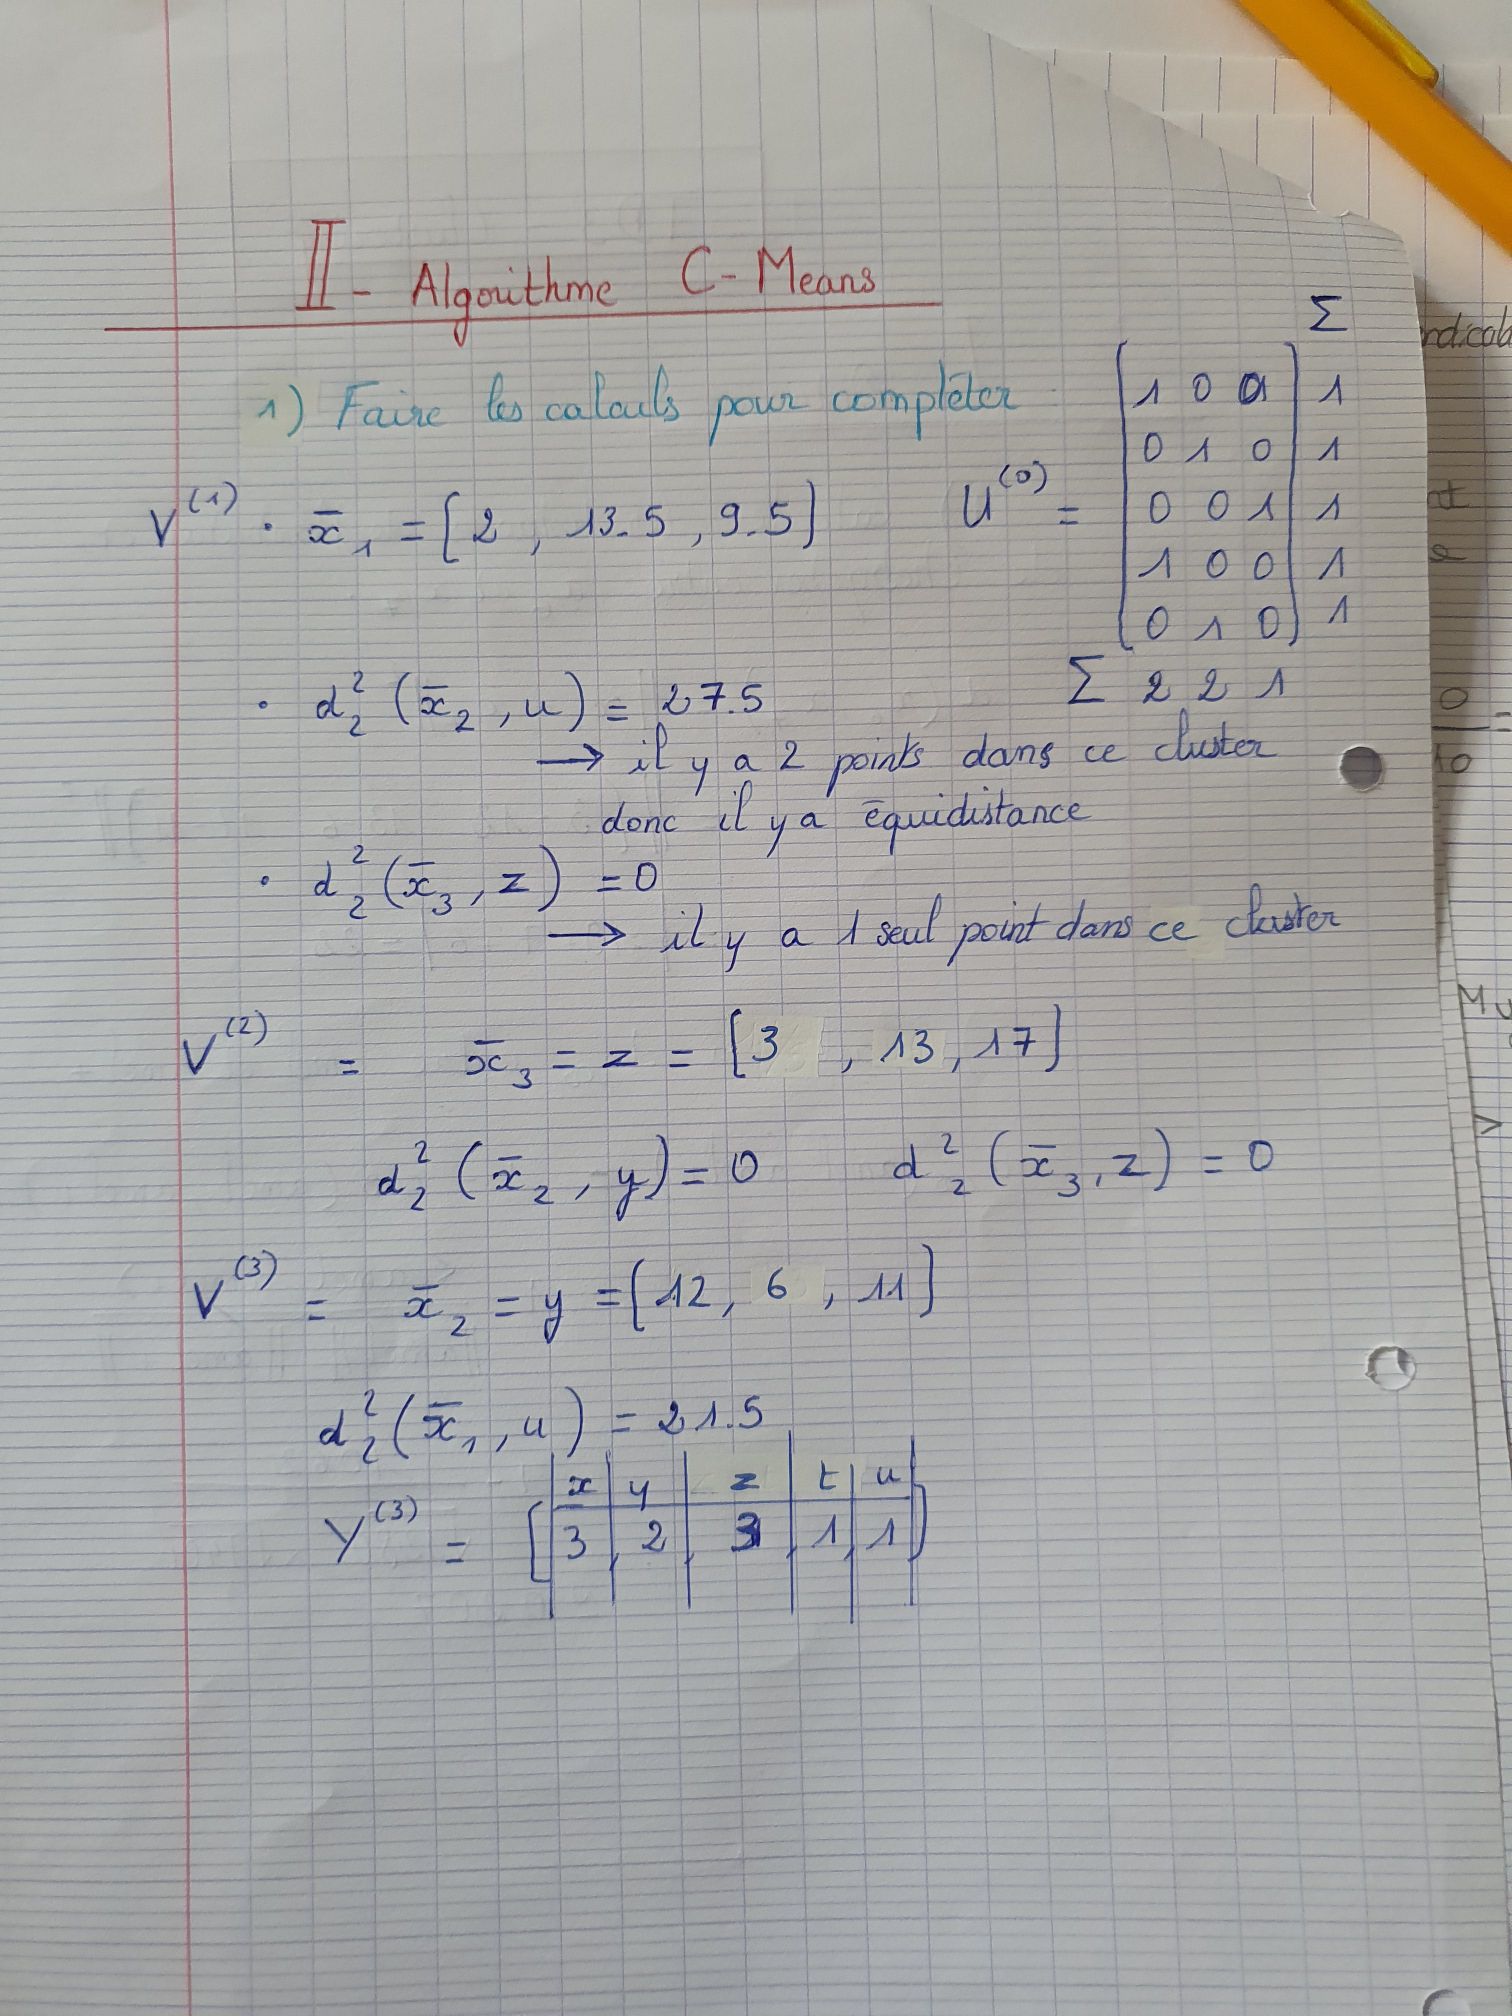 II - Algorithme C-Means
1) Faire les calculs pour compléter
V^(1) • x̄₁ = [2 , 13.5 , 9.5]
Σ
U^(0) =
1 0 0 1
0 1 0 1
0 0 1 1
1 0 0 1
0 1 0 1
Σ 2 2 1
• d₂² (x̄₂ , u) = 27.5
→ il y a 2 points dans ce cluster
donc il y a équidistance
• d₂² (x̄₃ , z) = 0
→ il y a 1 seul point dans ce cluster
V^(2) = x̄₃ = z = [3 , 13 , 17]
d₂² (x̄₂ , y) = 0 d₂² (x̄₃ , z) = 0
V^(3) = x̄₂ = y = [12 , 6 , 11]
d₂² (x̄₁ , u) = 21.5
x y z t u
Y^(3) = [3 , 2 , 3 , 1 , 1]
0
10